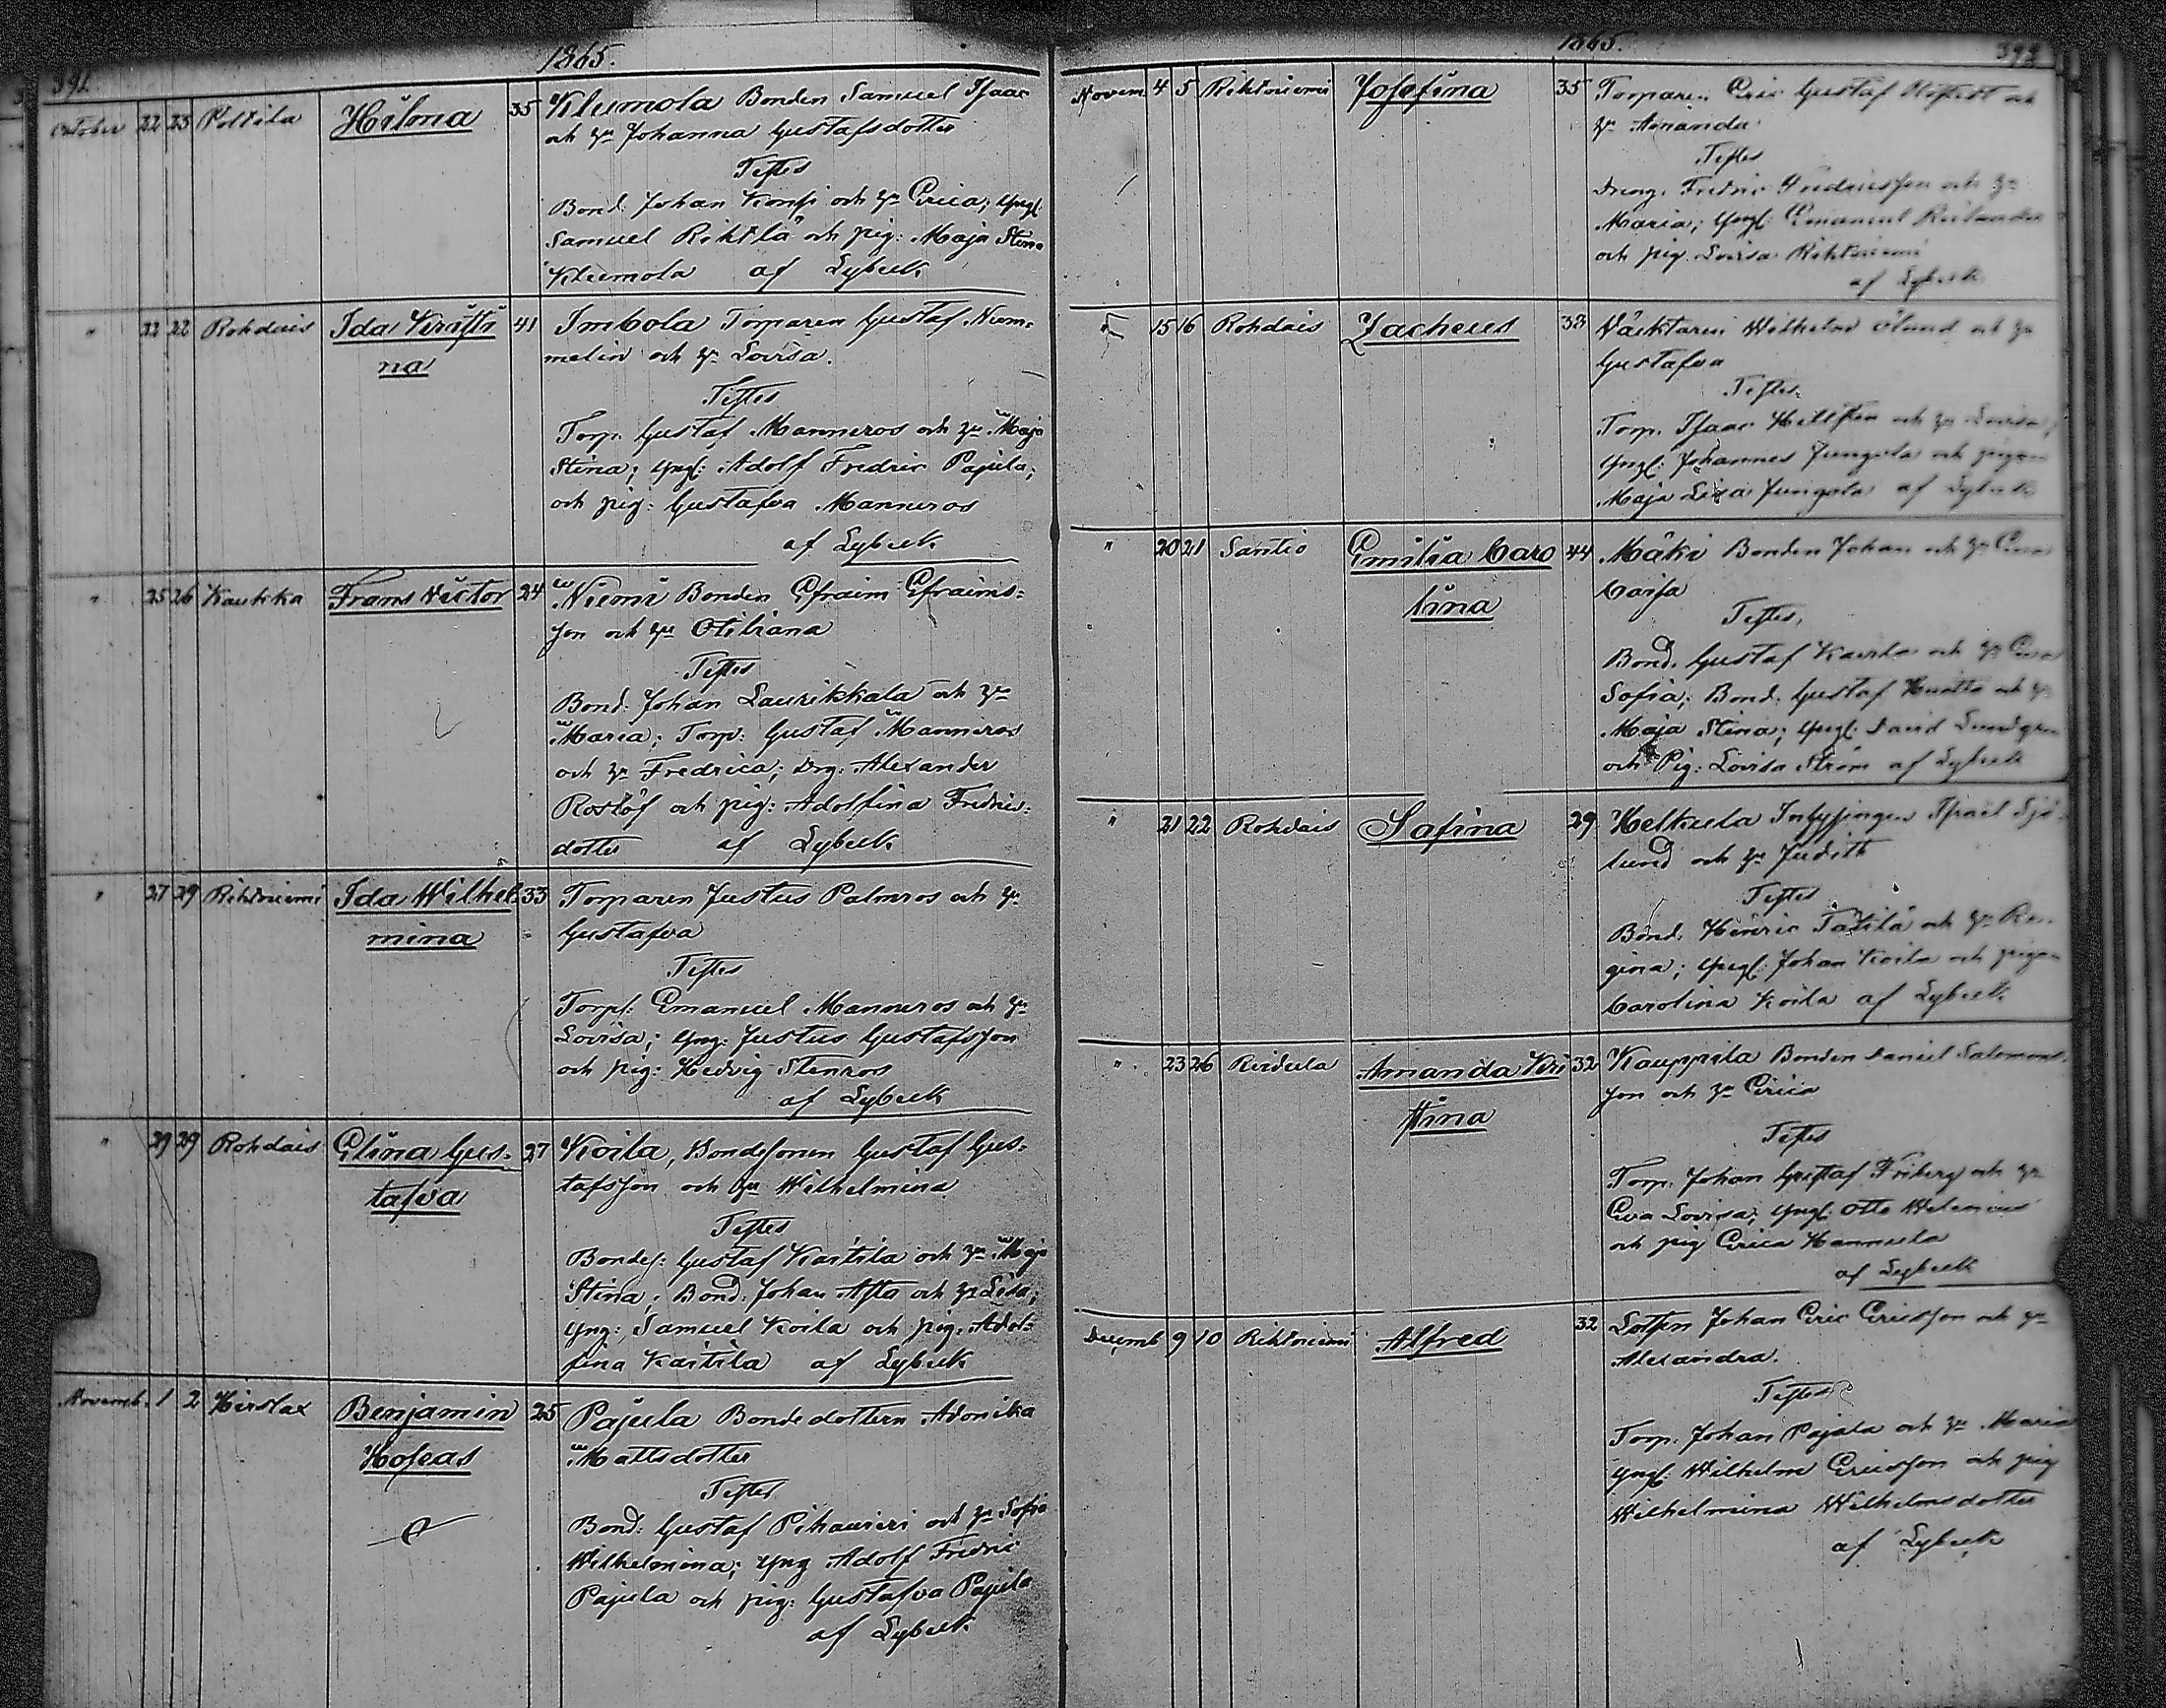 391
1865.
October 22 23 Poltila Hilma 35 Klemola Bonden Samuel Isaac
och hu Johanna Gustafsdotter
Testes
Bond: Johan Konsi och hu Erica; yngl:
Samuel Riktla och pig: Maja Stina
Klemola af Lybeck
" 22 22 Rohdais Ida Kristi 41 Imbola Torparen Gustaf Num-
na melin och hu Lovisa.
Testes
Torp. Gustaf Manneros och hu Maja
Stina; yngl: Adolf Fredric Pajula;
och pig: Gustafva Manneros
af Lybeck
" 25 26 Kaukka Frans Victor 24 Niemi Bonden Efraim Efraims-
son och hu Otiliana
Testes
Bond: Johan Laurikkala och hu
Maria; Torp: Gustaf Manneros
och hu Fredrica; Drg: Alexander
Roslöf och pig: Adolfina Fredrics-
dotter af Lybeck
" 27 29 Rihtniemi Ida Wilhel- 33 Torparen Justus Palmros och hu
mina Gustafva
Testes
Torp: Emanuel Manneros och hu
Lovisa; yng: Justus Gustafsson
och pig: Hedvig Stenros
af Lybeck
" 29 29 Rohdais Elina Gus- 27 Koila, Bondesonen Gustaf Gus-
tafva tafsson och hu Wilhelmina
Testes
Bondes: Gustaf Kaitila och hu Maja
Stina; Bond: Johan Afto och hu Lisa;
yng: Samuel Koila och pig: Adol-
fina Kaitila af Lybeck
Novemb. 1 2 Hirslax Benjamin 25 Pajula Bondedottern Adonika
Hoseas Mattsdotter
Testes
Bond: Gustaf Pihauieri och hu Sofia
Wilhelmina; yng Adolf Fredric
Pajula och pig: Gustafva Pajula
af Lybeck
1865.
392
Novem 4 5 Rihtniemi Josefina 35 Torparen Eric Gustaf och
hu Amanda
Testes
Dreng. Fredric Fredricsson och hu
Maria; yngl: Emanuel
och pig. Lovisa Rihtniemi
af Lybeck
" 15 16 Rohdais Zacheus 33 Väktaren Wilhelm Ölund och hu
Gustafva
Testes
Torp. Isaac Hellsten och hu Lovisa;
yngl: Johannes Jungola och pigan
Maja Lisa Jungola af Lybeck
" 20 21 Santio Emilia Caro 44 Mäki Bonden Johan och hu Eva
lina Caisa
Testes
Bond. Gustaf Kaurla och hu Eva
Sofia; Bond: Gustaf och hu
Maja Stina; yngl: David Lundgren
och Pig: Lovisa Ström af Lybeck
" 21 22 Rohdais Safina 29 Helkula Inhysingen Israel Sjö-
lund och hu Judith
Testes
Bond. Henric Tätilä och hu Re-
gina; yngl: Johan Koila och pigan
Carolina Koila af Lybeck
" 23 26 Reidula Amanda Kri 32 Kauppila Bonden Daniel Salomons-
stina son och hu Erica
Testes
Torp. Johan Gustaf Friberg och hu
Eva Lovisa; yngl: Otto Welenius
och pig Erica Hannula
af Lybeck
Decemb 9 10 Rihtniemi Alfred 32 Lotsen Johan Eric Ericsson och hu
Alexandra.
Testes
Torp: Johan Pajala och hu Maria
yngl: Wilhelm Ericsson och pig
Wilhelmina Wilhelmsdotter
af Lybeck